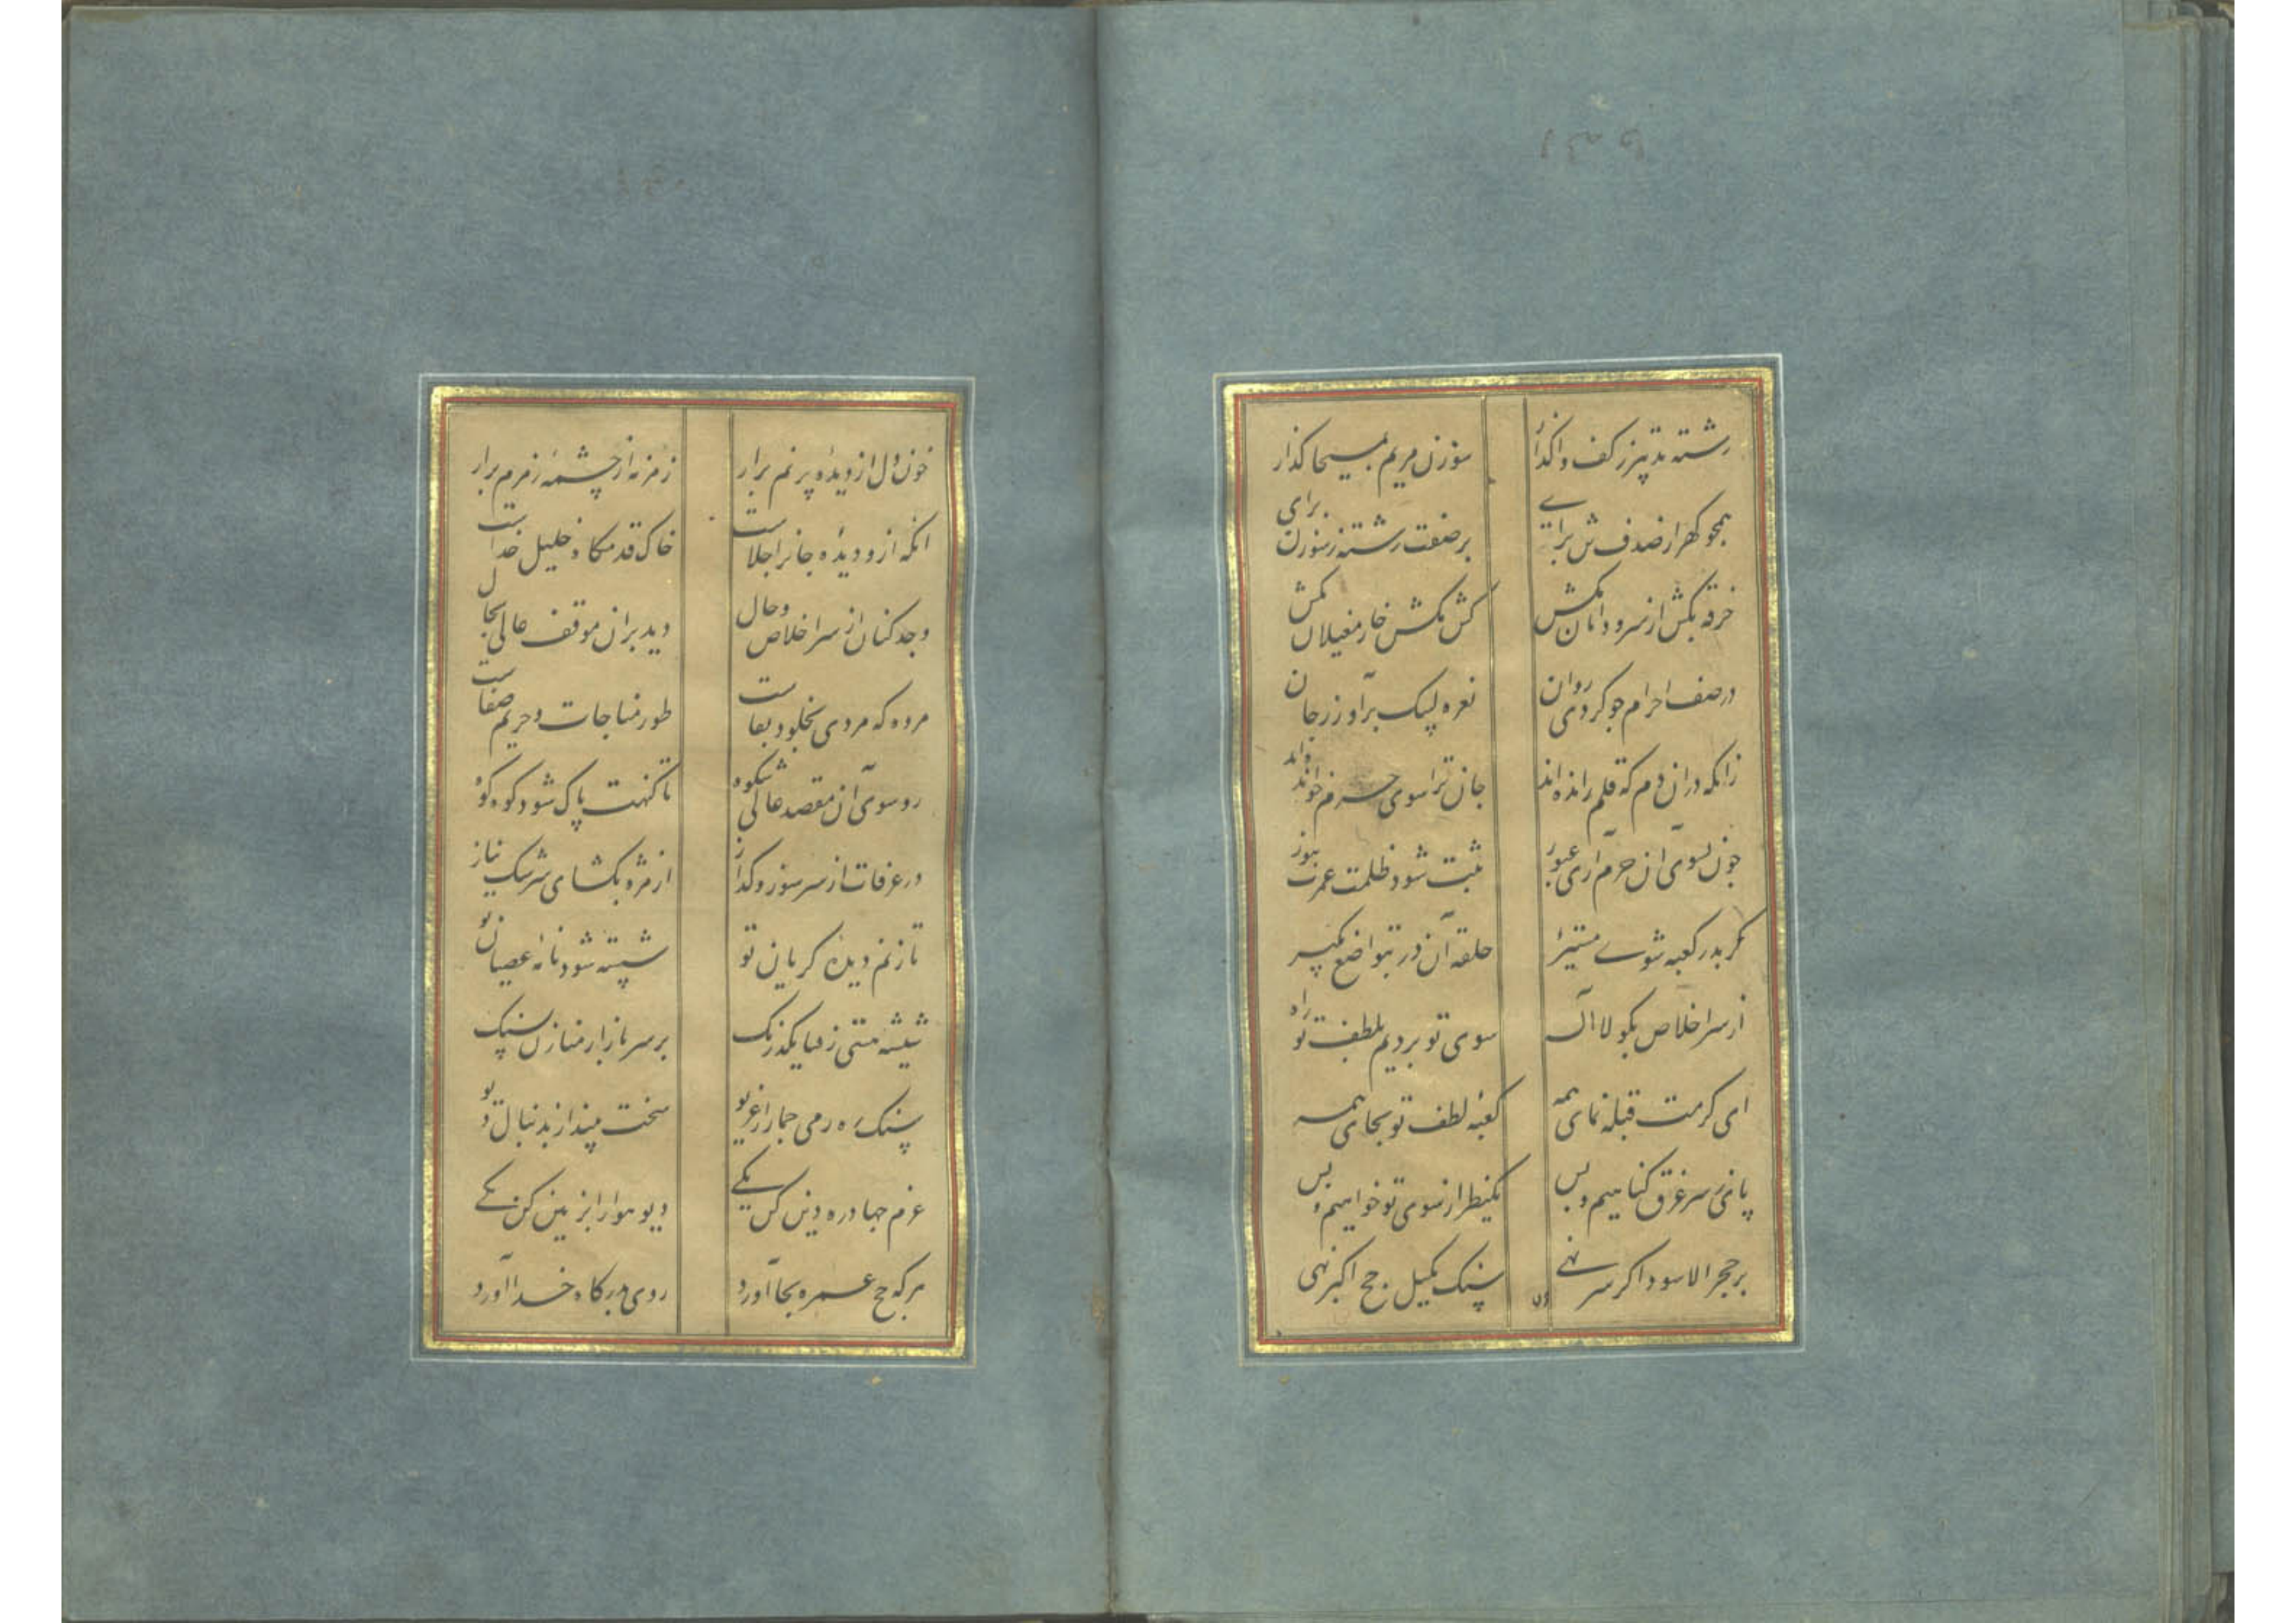 رشته تدبیر ز کف واکذار سوزن مریم بمسیحا کذار
همچو کهر از صدف تن برای بر صفت رشته ز سوزن برای
خرقه بکش از سر و دامان مکش کش مکش خار مغیلان مکش
در صف احرام چو کردی روان نعره لبیک برآور ز جان
زانکه در آن دم که قلم رانده اند جان ترا سوی حرم خوانده اند
چون بسوی آن حرم آری عبور ثبت شود ظلمت عمرت بنور
مکر بدر کعبه شوی مستجیر حلقه آن در بتواضع بکیر
از سر اخلاص بکو لا اله سوی تو بردیم بلطف تو راه
ای کرمت قبله نمای همه کعبه لطف تو بجای همه
پای ز سر غرق کناهیم و بس یکنظر از سوی تو خواهیم و بس
بر حجر الاسود اکر سر نهی سنک بکیل حج اکبر نهی
خون دل از دیده پر نم برار زمزمه از چشمه زمزم برار
آنکه ازو دیده جانرا جلاست خاک قدمکاه خلیل خداست
وجد کنان از سر اخلاص و حال دید بران موقف عالی بجال
مروه که مردی بخلود بقاست طور مناجات و حریم صفاست
رو سوی آن مقصد عالی شکوه تا کنهت پاک شود کوه کوه
در عرفات از سر سوز و کداز از مژه بکشای سرشک نیاز
تا ز نم دیده کریان تو شسته شود نامه عصیان تو
شیشه منی ز منا یکدرنک بر سر بازار منا زن بسنک
سنک ره رمی جمار از غریو سخت مینداز بدنبال دیو
عزم جهاد ره دین کن یکی دیو هوا را بزمین کن یکی
هرکه حج عمره بجا آورد روی بدرکاه خدا آورد